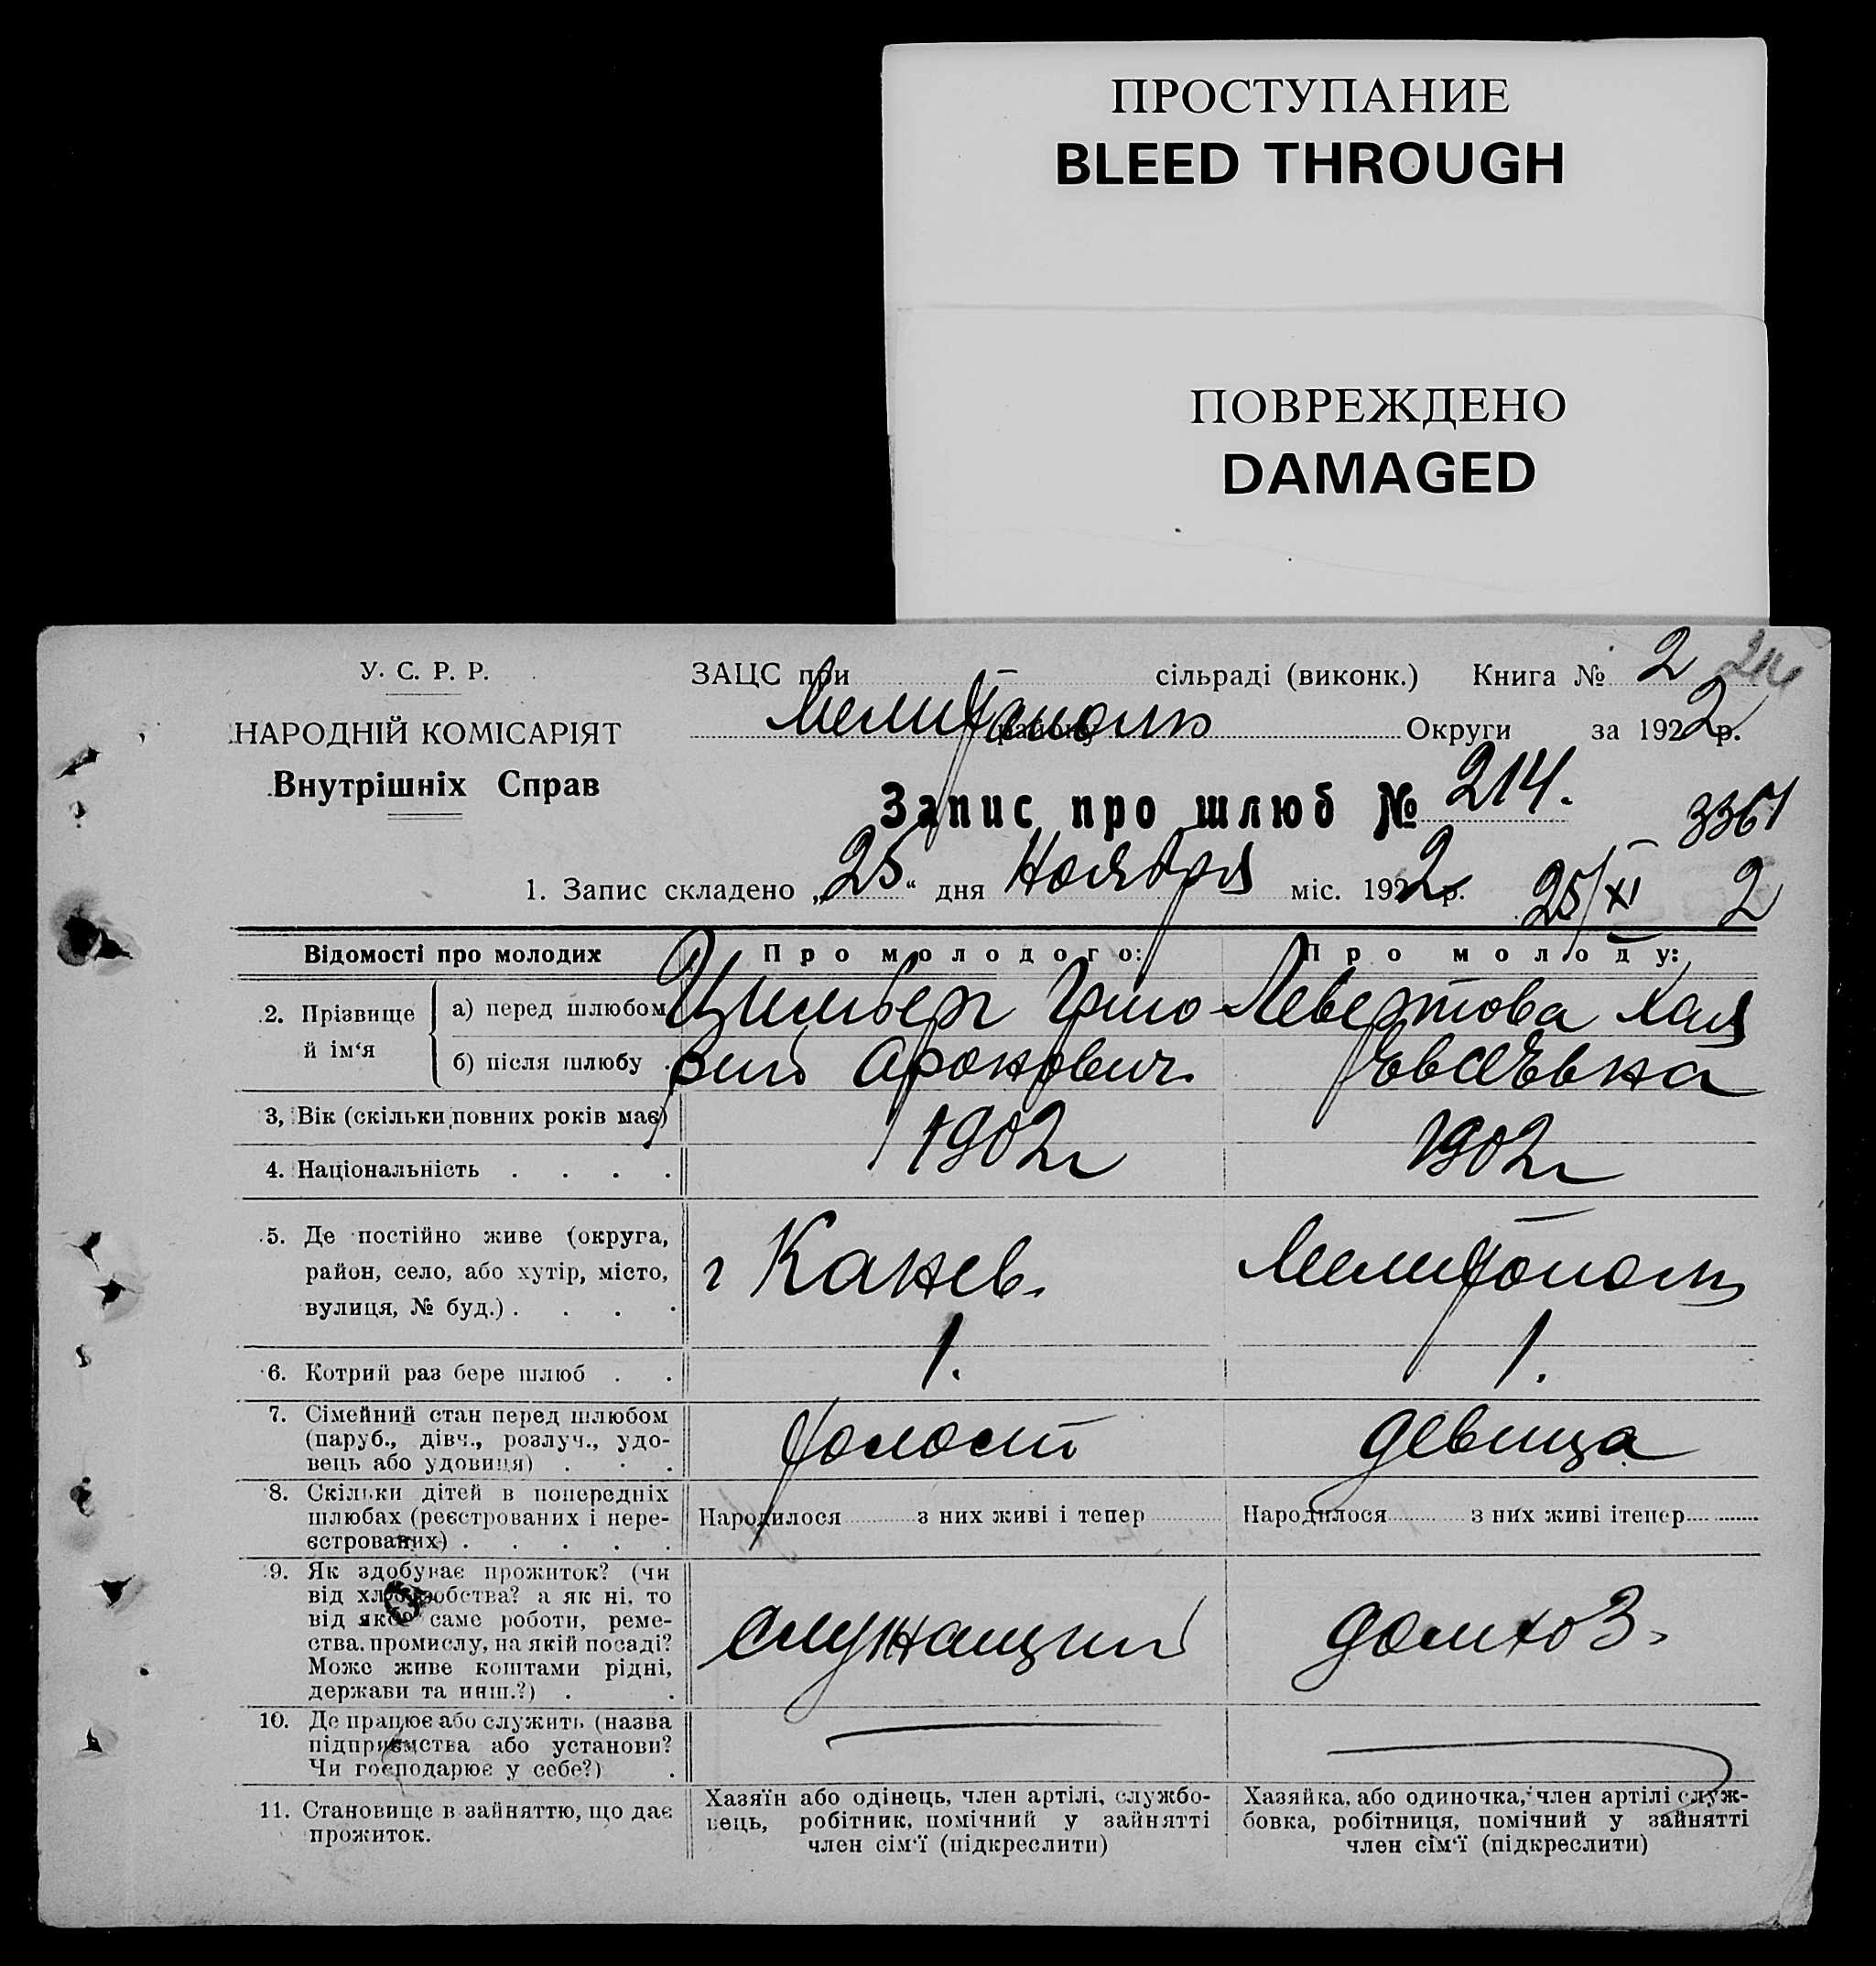 ПРОСТУПАНИЕ
BLEED THROUGH
ПОВРЕЖДЕНО
DAMAGED
У. С. Р. Р.
НАРОДНІЙ КОМІСАРІЯТ
Внутрішніх Справ
ЗАЦС при сільраді (виконк.) Книга № 2 214
Мелитополь району Округи за 1922 р.
Запис про шлюб № 214.
3361
1. Запис складено „25“ дня Ноября міс. 1922 р. 25/XI 2
Відомості про молодих Про молодого: Про молоду:
2. Прізвище й ім‘я
а) перед шлюбом Цимберг Григо- Левертова Хая
б) після шлюбу . рий Аронович. Евсеевна
3, Вік (скільки повних років має) 1902г 1902г
4. Національність . . . .
5. Де постійно живе (округа,
район, село, або хутір, місто, г Канев. Мелитополь
вулиця, № буд.) . . . .
6. Котрий раз бере шлюб . . 1. 1.
7. Сімейний стан перед шлюбом
(паруб., дівч., розлуч., удо- холост девица
вець або удовиця) . . .
8. Скільки дітей в попередніх
шлюбах (реєстрованих і нере- Народилося з них живі і тепер Народилося з них живі ітепер
єстрованих) . . . . .
9. Як здобуває прожиток? (чи
від хліборобства? а як ні, то
від якої саме роботи, реме- служащий домхоз.
ства, промислу, на якій посаді?
Може живе коштами рідні,
держави та инш.?) . .
10. Де працює або служить (назва
підприємства або установи?
Чи господарює у себе?) .
11. Становище в зайняттю, що дає
прожиток.
Хазяїн або одінець, член артілі, службо-
вець, робітник, помічний у зайнятті
член сім‘ї (підкреслити)
Хазяйка, або одиночка, член артілі служ-
бовка, робітниця, помічний у зайнятті
член сім‘ї (підкреслити)